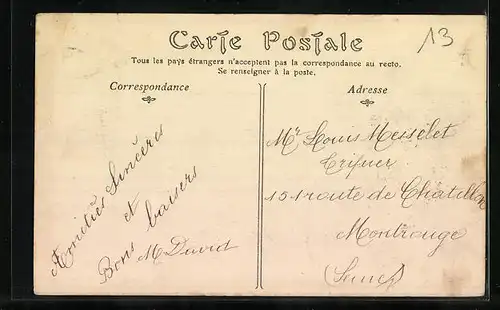 Carte Postale
13
Tous les pays étrangers n'acceptent pas la correspondance au recto.
Se renseigner à la poste.
Correspondance
Adresse
Amitiés Sincères
et
Bons baisers
M David
Mr Louis Messelet
101 route de Châtillon
Montrouge
(Seine)